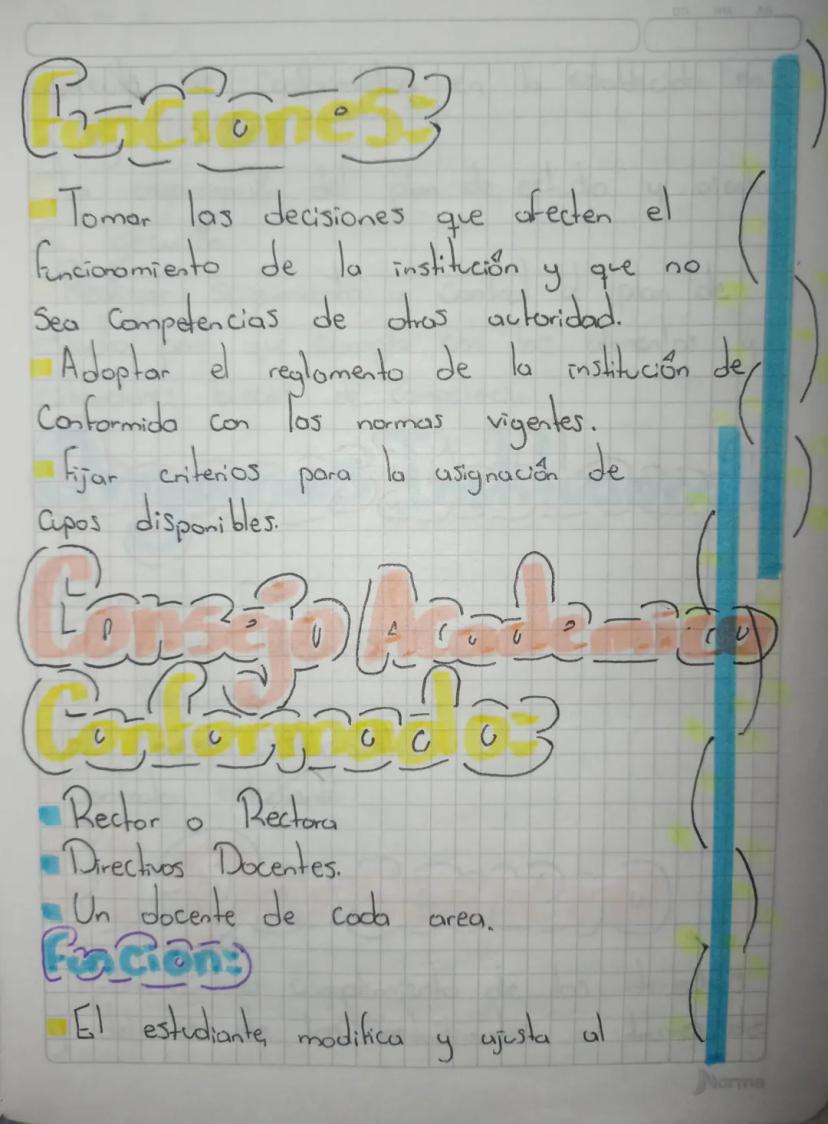 Funciones:
Tomar las decisiones que afecten el
funcionamiento de la institución y que no
Sea Competencias de otras autoridad.
Adoptar el reglamento de la institución de
Conformida con las normas vigentes.
Fijar criterios para la asignación de
Cupos disponibles.
Consejo Academico
Conformado:
Rector o Rectora
Directivos Docentes.
Un docente de cada area.
Función:
El estudiante, modifica y ajusta al
Norma